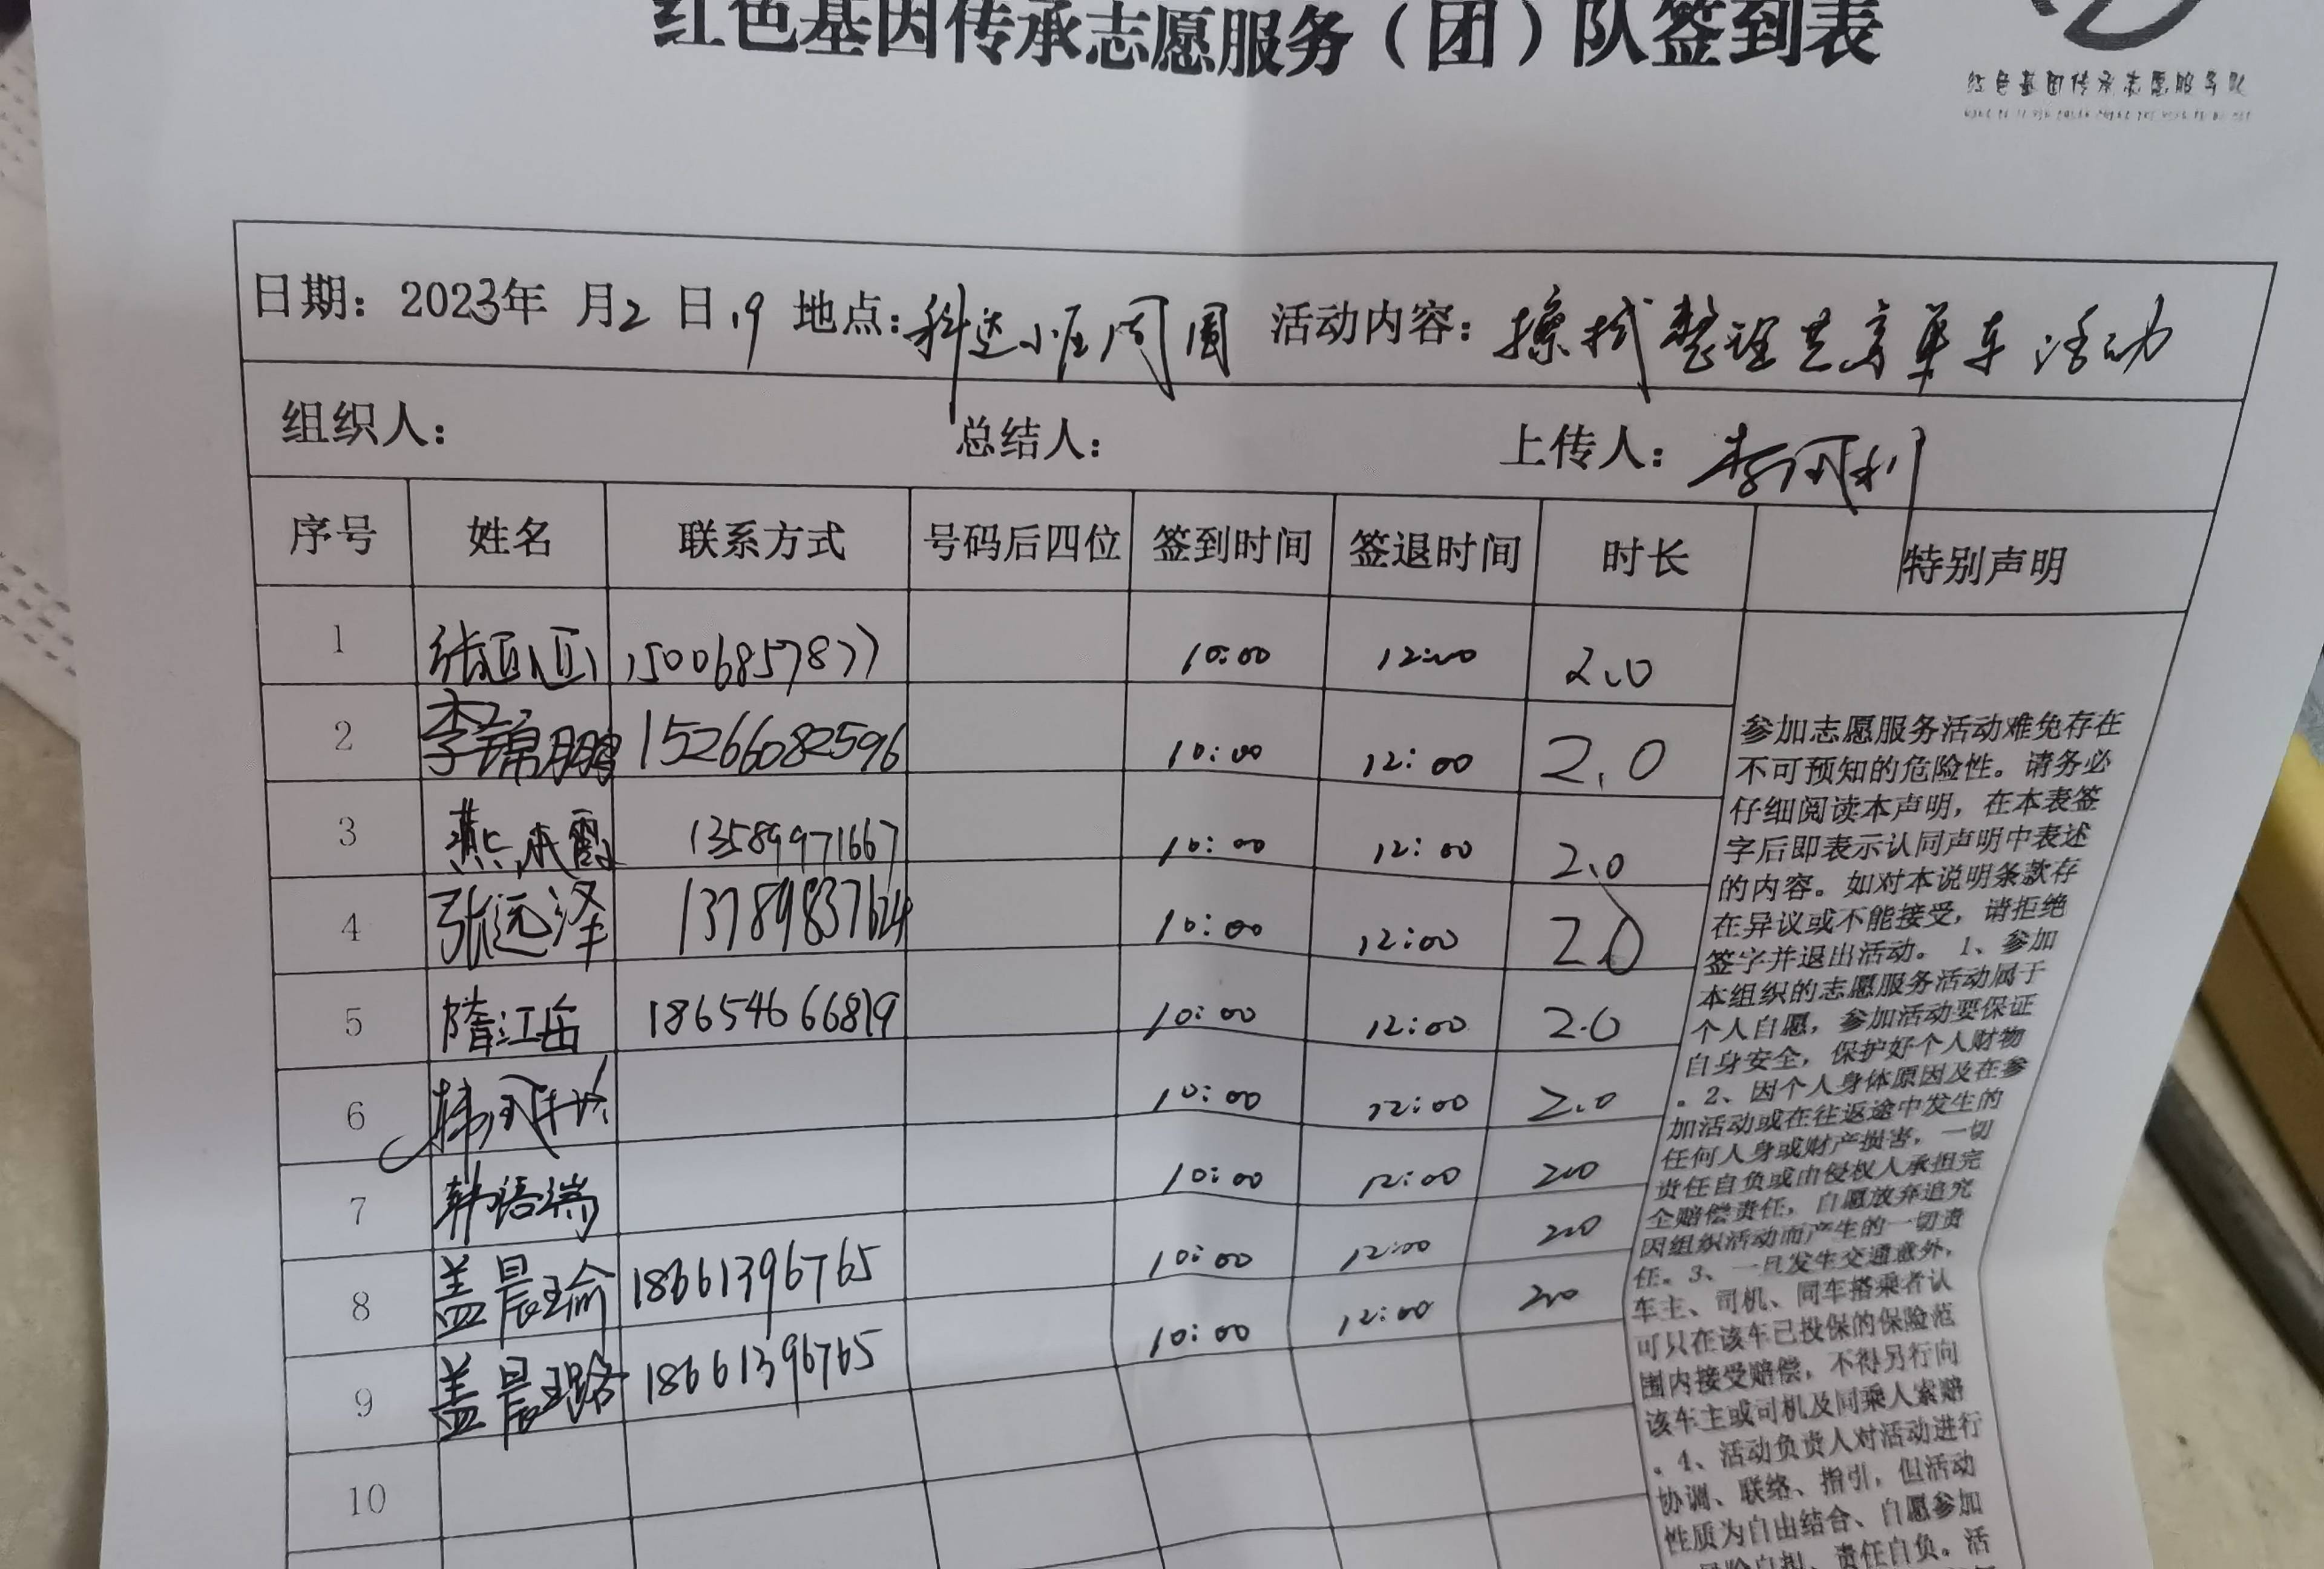 红色基因传承志愿服务（团）队签到表
红色基因传承志愿服务队
日期：2023年 月2 日19 地点：科达小区周围 活动内容：擦拭整理共享单车活动
组织人： 总结人： 上传人：李风利
序号 姓名 联系方式 号码后四位 签到时间 签退时间 时长 特别声明
1 张亚亚 15006857877 10:00 12:00 2.0
2 李锦鹏 15266082596 10:00 12:00 2.0
3 燕本霞 13589971667 10:00 12:00 2.0
4 张远泽 13789837624 10:00 12:00 2.0
5 隋江岳 18654666819 10:00 12:00 2.0
6 10:00 12:00 2.0
7 韩语端 10:00 12:00 2.0
8 盖晨瑜 18661396765 10:00 12:00 2.0
9 盖晨璐 18661396765 10:00 12:00 2.0
10
参加志愿服务活动难免存在
不可预知的危险性。请务必
仔细阅读本声明，在本表签
字后即表示认同声明中表述
的内容。如对本说明条款存
在异议或不能接受，请拒绝
签字并退出活动。 1、参加
本组织的志愿服务活动属于
个人自愿，参加活动要保证
自身安全，保护好个人财物
。2、因个人身体原因及在参
加活动或在往返途中发生的
任何人身或财产损害，一切
责任自负或由侵权人承担完
全赔偿责任，自愿放弃追究
因组织活动而产生的一切责
任。3、一旦发生交通意外，
车主、司机、同车搭乘者认
可只在该车已投保的保险范
围内接受赔偿，不得另行向
该车主或司机及同乘人索赔
。4、活动负责人对活动进行
协调、联络、指引，但活动
性质为自由结合、自愿参加
风险自担、责任自负。活